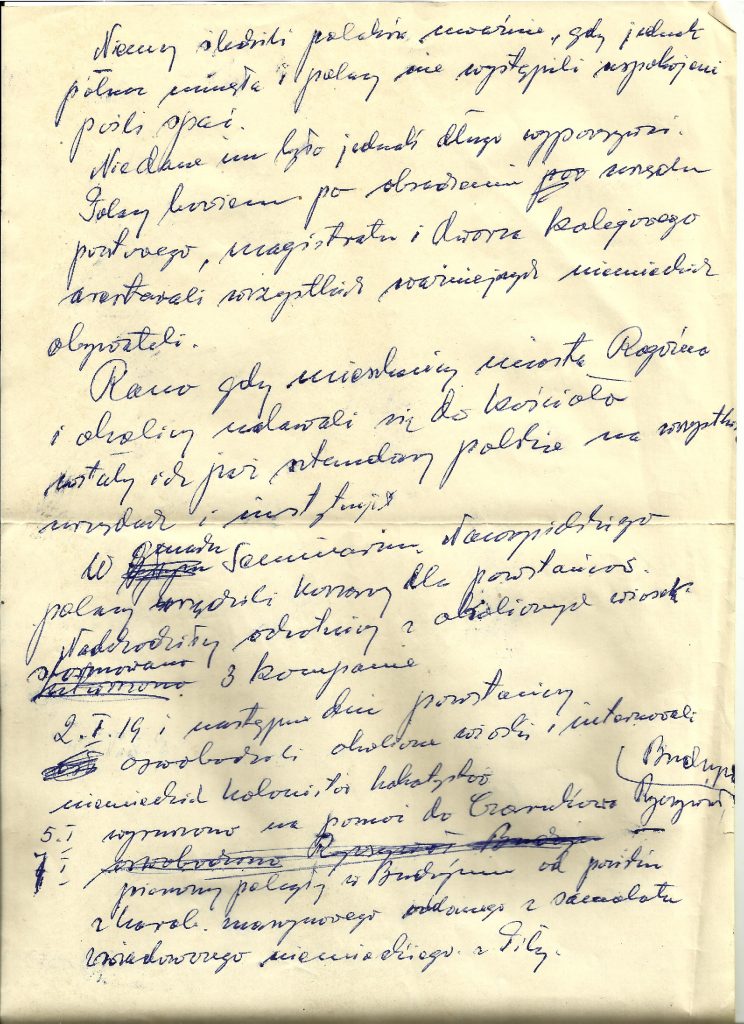 Niemcy śledzili polaków uważnie, gdy jednak
północ minęła i polacy nie wystąpili uspokojeni
pośli spać.
Nie dane im było jednak długo wypoczywać.
Polacy bowiem po obsadzeniu urzędu
pocztowego, magistratu i dworca kolejowego
aresztowali wszystkich ważniejszych niemieckich
obywateli.
Rano gdy mieszkańcy miasta Rogoźna
i okolicy udawali się do kościoła
witały ich już sztandary polskie na wszystkich
urzędach i instytucjach
W gmachu Seminarium Nauczycielskiego
polacy urządzili koszary dla powstańców.
Nadchodzili ochotnicy z okolicznych wiosek.
sformowano
utworzono 3 kompanie
2.I.19 i następne dni powstańcy
oswobodzili okoliczne wioski i internowali
niemieckich kolonistów hakatystów
5.I wyruszono na pomoc do Czarnkowa Budzyń Ryczywół
7 I oswobodzono Ryczywół Budzyń
pierwszy poległy w Budzyniu od pocisku
z karab. maszynowego oddanego z samolotu
zwiadowczego niemieckiego z Piły.